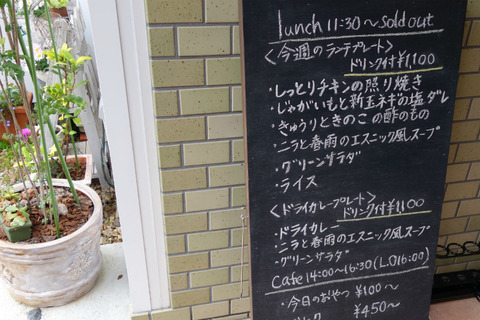 lunch 11:30〜sold out
〈今週のランチプレート〉
ドリンク付¥1,100
・しっとりチキンの照り焼き
・じゃがいもと新玉ネギの塩ダレ
・きゅうりときのこの酢のもの
・ニラと春雨のエスニック風スープ
・グリーンサラダ
・ライス
〈ドライカレープレート〉
ドリンク付¥1,100
・ドライカレー
・ニラと春雨のエスニック風スープ
・グリーンサラダ
cafe 14:00〜16:30(L.O16:00)
・今日のおやつ ¥100〜
¥450〜